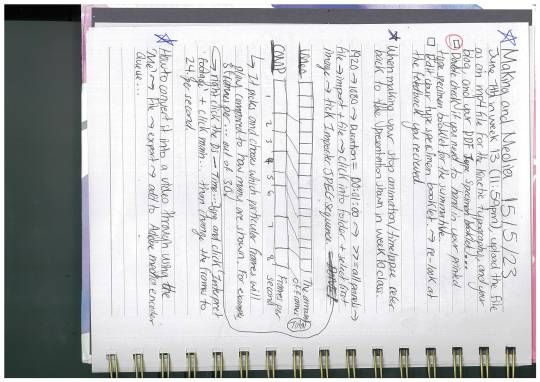 Making and Media 15/5/23
June 7th in week 13 (11:59pm), upload the file
as an mp4 file for the kinetic typography and your
blog and your PDF type specimen booklet...
Double check if you need to hand in your printed
type specimen booklet for the summative.
Edit your type specimen booklet → re-look at
the feedback you recieved
When making your stop animation/timelapse refer
back to the presentation shown in week 10 class.
1920 → 1080 → Duration = 00:01:00 → >> = all panels →
file → import + file → click into folder + select first
image → tick Importer JPEG sequence
The amount
of frames
COMP
1 2 3 4 5 6 7 8
Frames per
second
↳ It picks and chose which particular frames will
play compared to how many are shown. For example
8 frames per... out of 30
right click the DJ → Time... .jpg and click 'Interpret
footage' + click main... then change the frames to
24 per second
How to convert it into a video through using the
File → export → add to Adobe media encoder
queue...